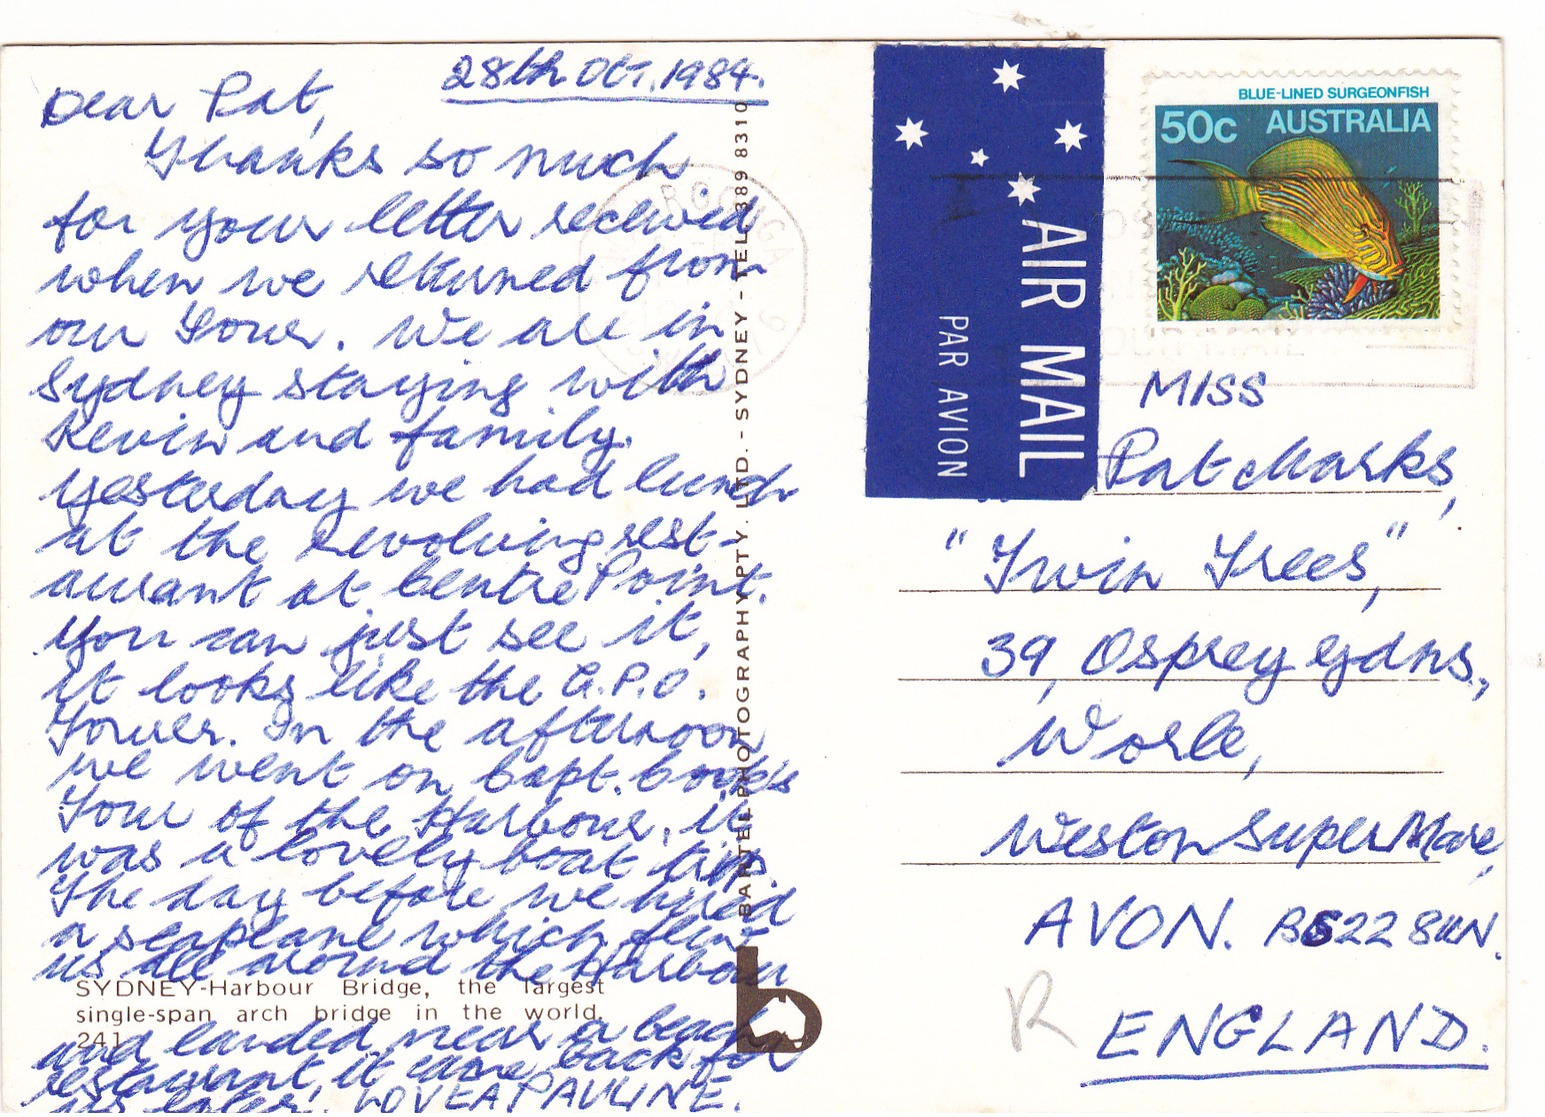 28th Oct. 1984.
Dear Pat,
Thanks so much
for your letter received
when we returned from
our Tour. We are in
Sydney staying with
Kevin and family.
Yesterday we had lunch
at the revolving rest-
aurant at Centre Point.
You can just see it,
it looks like the G.P.O.
Tower. In the afternoon
we went on Capt. Cook's
Tour of the Harbour, it
was a lovely boat trip.
The day before we hired
a seaplane which flew
us all around the Harbour
and landed near a beach
restaurant, it came back for
us later. LOVE PAULINE.
SYDNEY-Harbour Bridge, the largest
single-span arch bridge in the world.
241
BARTEL PHOTOGRAPHY PTY. LTD. - SYDNEY - TEL. 389 8310
b
AIR MAIL
PAR AVION
BLUE-LINED SURGEONFISH
50c AUSTRALIA
MISS
Pat Marks,
"Twin Trees",
39, Osprey Gdns.,
Worle,
Weston Super Mare,
AVON. BS22
ENGLAND.
R